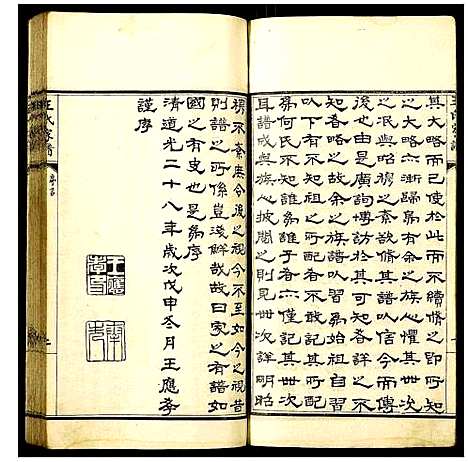 其大略而已使於此而不續脩之即所知
之大略亦漸歸烏有余之族人心懼
之泯與昭穆之紊欲脩其譜以信今而傳
後也由是廣詢博訪於其知者詳之不
知者略之故余之族譜以習為始祖自習
以下有不知祖之所配者不敢記其所配
為何氏不知誰為誰子者亦僅記其世次
耳譜成與族人披閱之則見世次詳明昭
穆不紊庶令後之視今不至如今之視昔
則譜之所係豈淺鮮哉故曰家之有譜如
國之有史也是為序
清道光二十八年歲次戊申冬月王應奎
謹序
王氏家譜
序言